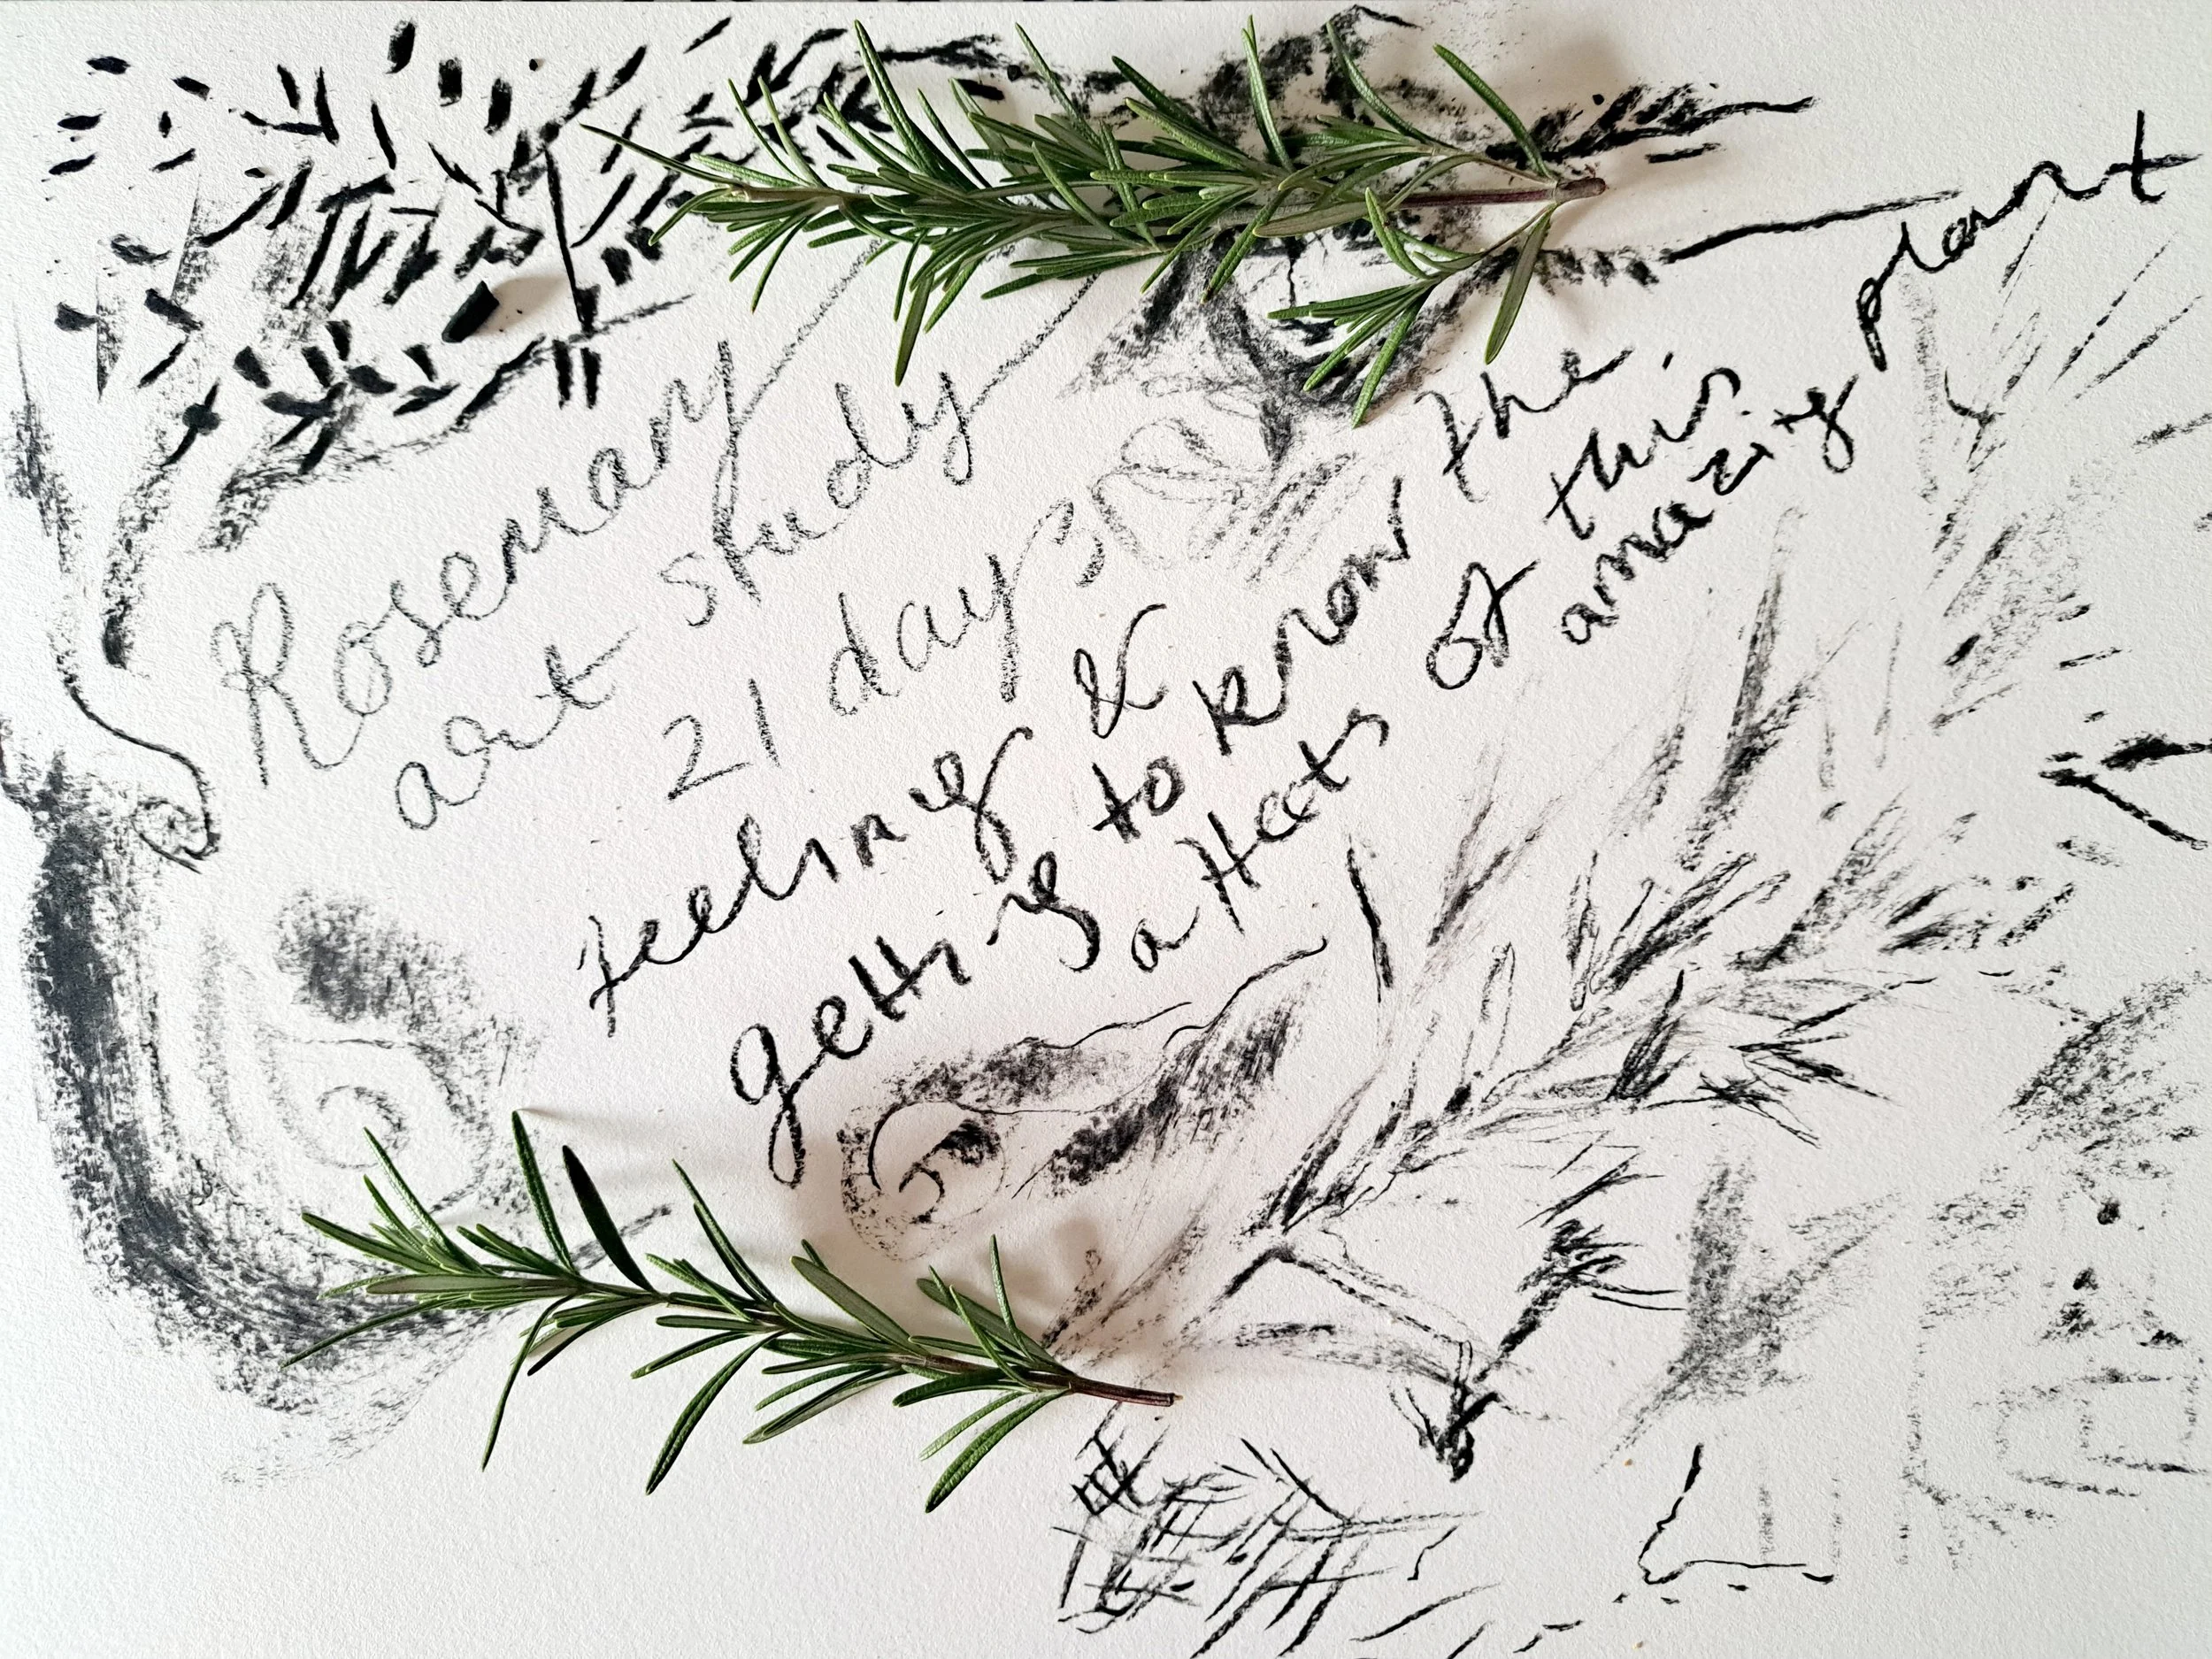 Rosemary
art study
21 days
feeling &
getting to know the
affects of this
amazing plant